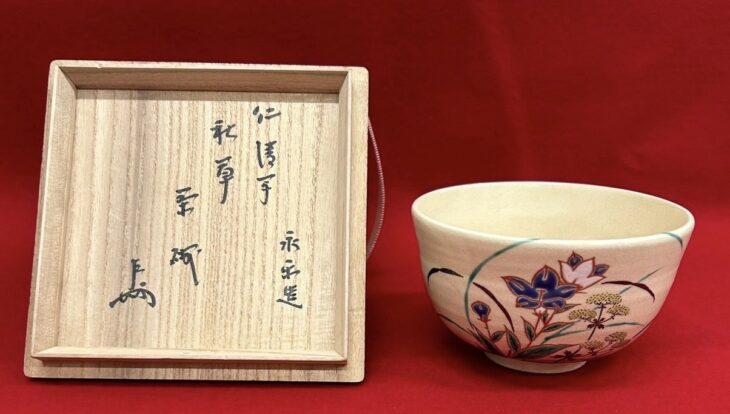 仁清手
秋草
茶碗
永楽造